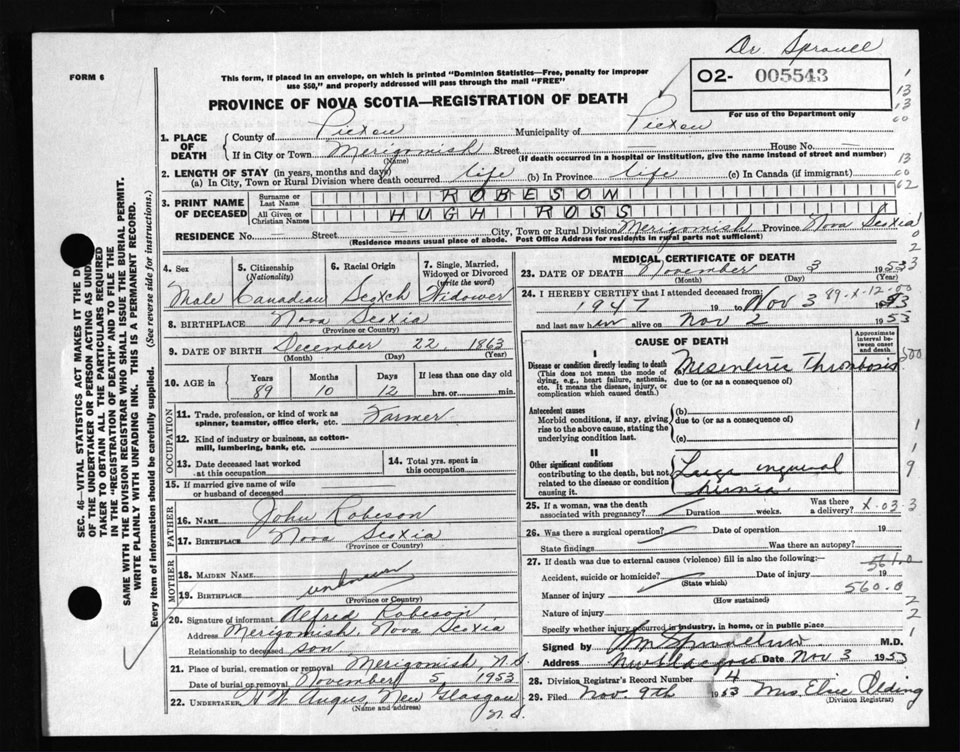 Dr. Sproull
FORM 6
This form, if placed in an envelope, on which is printed "Dominion Statistics—Free, penalty for improper
use $50," and properly addressed will pass through the mail "FREE"
O2- 005543
For use of the Department only
PROVINCE OF NOVA SCOTIA—REGISTRATION OF DEATH
1. PLACE OF DEATH { County of Pictou Municipality of Pictou
If in City or Town Merigomish Street — House No. —
(Name) (If death occurred in a hospital or institution, give the name instead of street and number)
2. LENGTH OF STAY (in years, months and days)
(a) In City, Town or Rural Division where death occurred life (b) In Province life (c) In Canada (if immigrant)
3. PRINT NAME OF DECEASED { Surname or Last Name ROBESON
All Given or Christian Names HUGH ROSS
RESIDENCE No. Street City, Town or Rural Division Merigomish Province Nova Scotia
(Residence means usual place of abode. Post Office Address for residents in rural parts not sufficient)
4. Sex Male
5. Citizenship (Nationality) Canadian
6. Racial Origin Scotch
7. Single, Married, Widowed or Divorced (write the word) Widower
8. BIRTHPLACE Nova Scotia
(Province or Country)
9. DATE OF BIRTH December 22 1863
(Month) (Day) (Year)
10. AGE in Years 89 Months 10 Days 12 If less than one day old hrs. or min.
OCCUPATION
11. Trade, profession, or kind of work as spinner, teamster, office clerk, etc. Farmer
12. Kind of industry or business, as cotton-mill, lumbering, bank, etc.
13. Date deceased last worked at this occupation
14. Total yrs. spent in this occupation
15. If married give name of wife or husband of deceased
FATHER
16. Name John Robeson
17. Birthplace Nova Scotia
(Province or Country)
MOTHER
18. Maiden Name
19. Birthplace unknown
(Province or Country)
20. Signature of informant Alfred Robeson
Address Merigomish, Nova Scotia
Relationship to deceased son
21. Place of burial, cremation or removal Merigomish, N.S.
Date of burial or removal November 5 1953
22. Undertaker H W Angus, New Glasgow
(Name and address) N.S.
MEDICAL CERTIFICATE OF DEATH
23. DATE OF DEATH November 3 1953
(Month) (Day) (Year)
24. I HEREBY CERTIFY that I attended deceased from:
1947 19 to Nov 3 1953
89-X-12-00
and last saw him alive on Nov 2 1953
CAUSE OF DEATH
Approximate interval between onset and death
I
Disease or condition directly leading to death
(This does not mean the mode of dying, e.g., heart failure, asthenia, etc. It means the disease, injury, or complication which caused death.)
Mesenteric Thrombosis
due to (or as a consequence of)
Antecedent causes
Morbid conditions, if any, giving rise to the above cause, stating the underlying condition last.
(b)
due to (or as a consequence of)
(c)
II
Other significant conditions
contributing to the death, but not related to the disease or condition causing it.
Large inguinal
hernia
25. If a woman, was the death associated with pregnancy? Duration weeks. Was there a delivery?
X-03
26. Was there a surgical operation? Date of operation 19
State findings Was there an autopsy?
27. If death was due to external causes (violence) fill in also the following:—
561.0
Accident, suicide or homicide? Date of injury 19
(State which)
560.0
Manner of injury
(How sustained)
Nature of injury
Specify whether injury occurred in industry, in home, or in public place
Signed by M.D.
Address Date Nov 3 1953
28. Division Registrar's Record Number 4
29. Filed Nov. 9th 1953 Mrs. Elsie Olding
(Division Registrar)
SEC. 46—VITAL STATISTICS ACT MAKES IT THE DU
OF THE UNDERTAKER OR PERSON ACTING AS UND
TAKER TO OBTAIN ALL THE PARTICULARS REQUIRED
IN THE "REGISTRATION OF DEATH" AND TO FILE THE
SAME WITH THE DIVISION REGISTRAR WHO SHALL ISSUE THE BURIAL PERMIT.
WRITE PLAINLY WITH UNFADING INK. THIS IS A PERMANENT RECORD.
Every item of information should be carefully supplied. (See reverse side for instructions.)